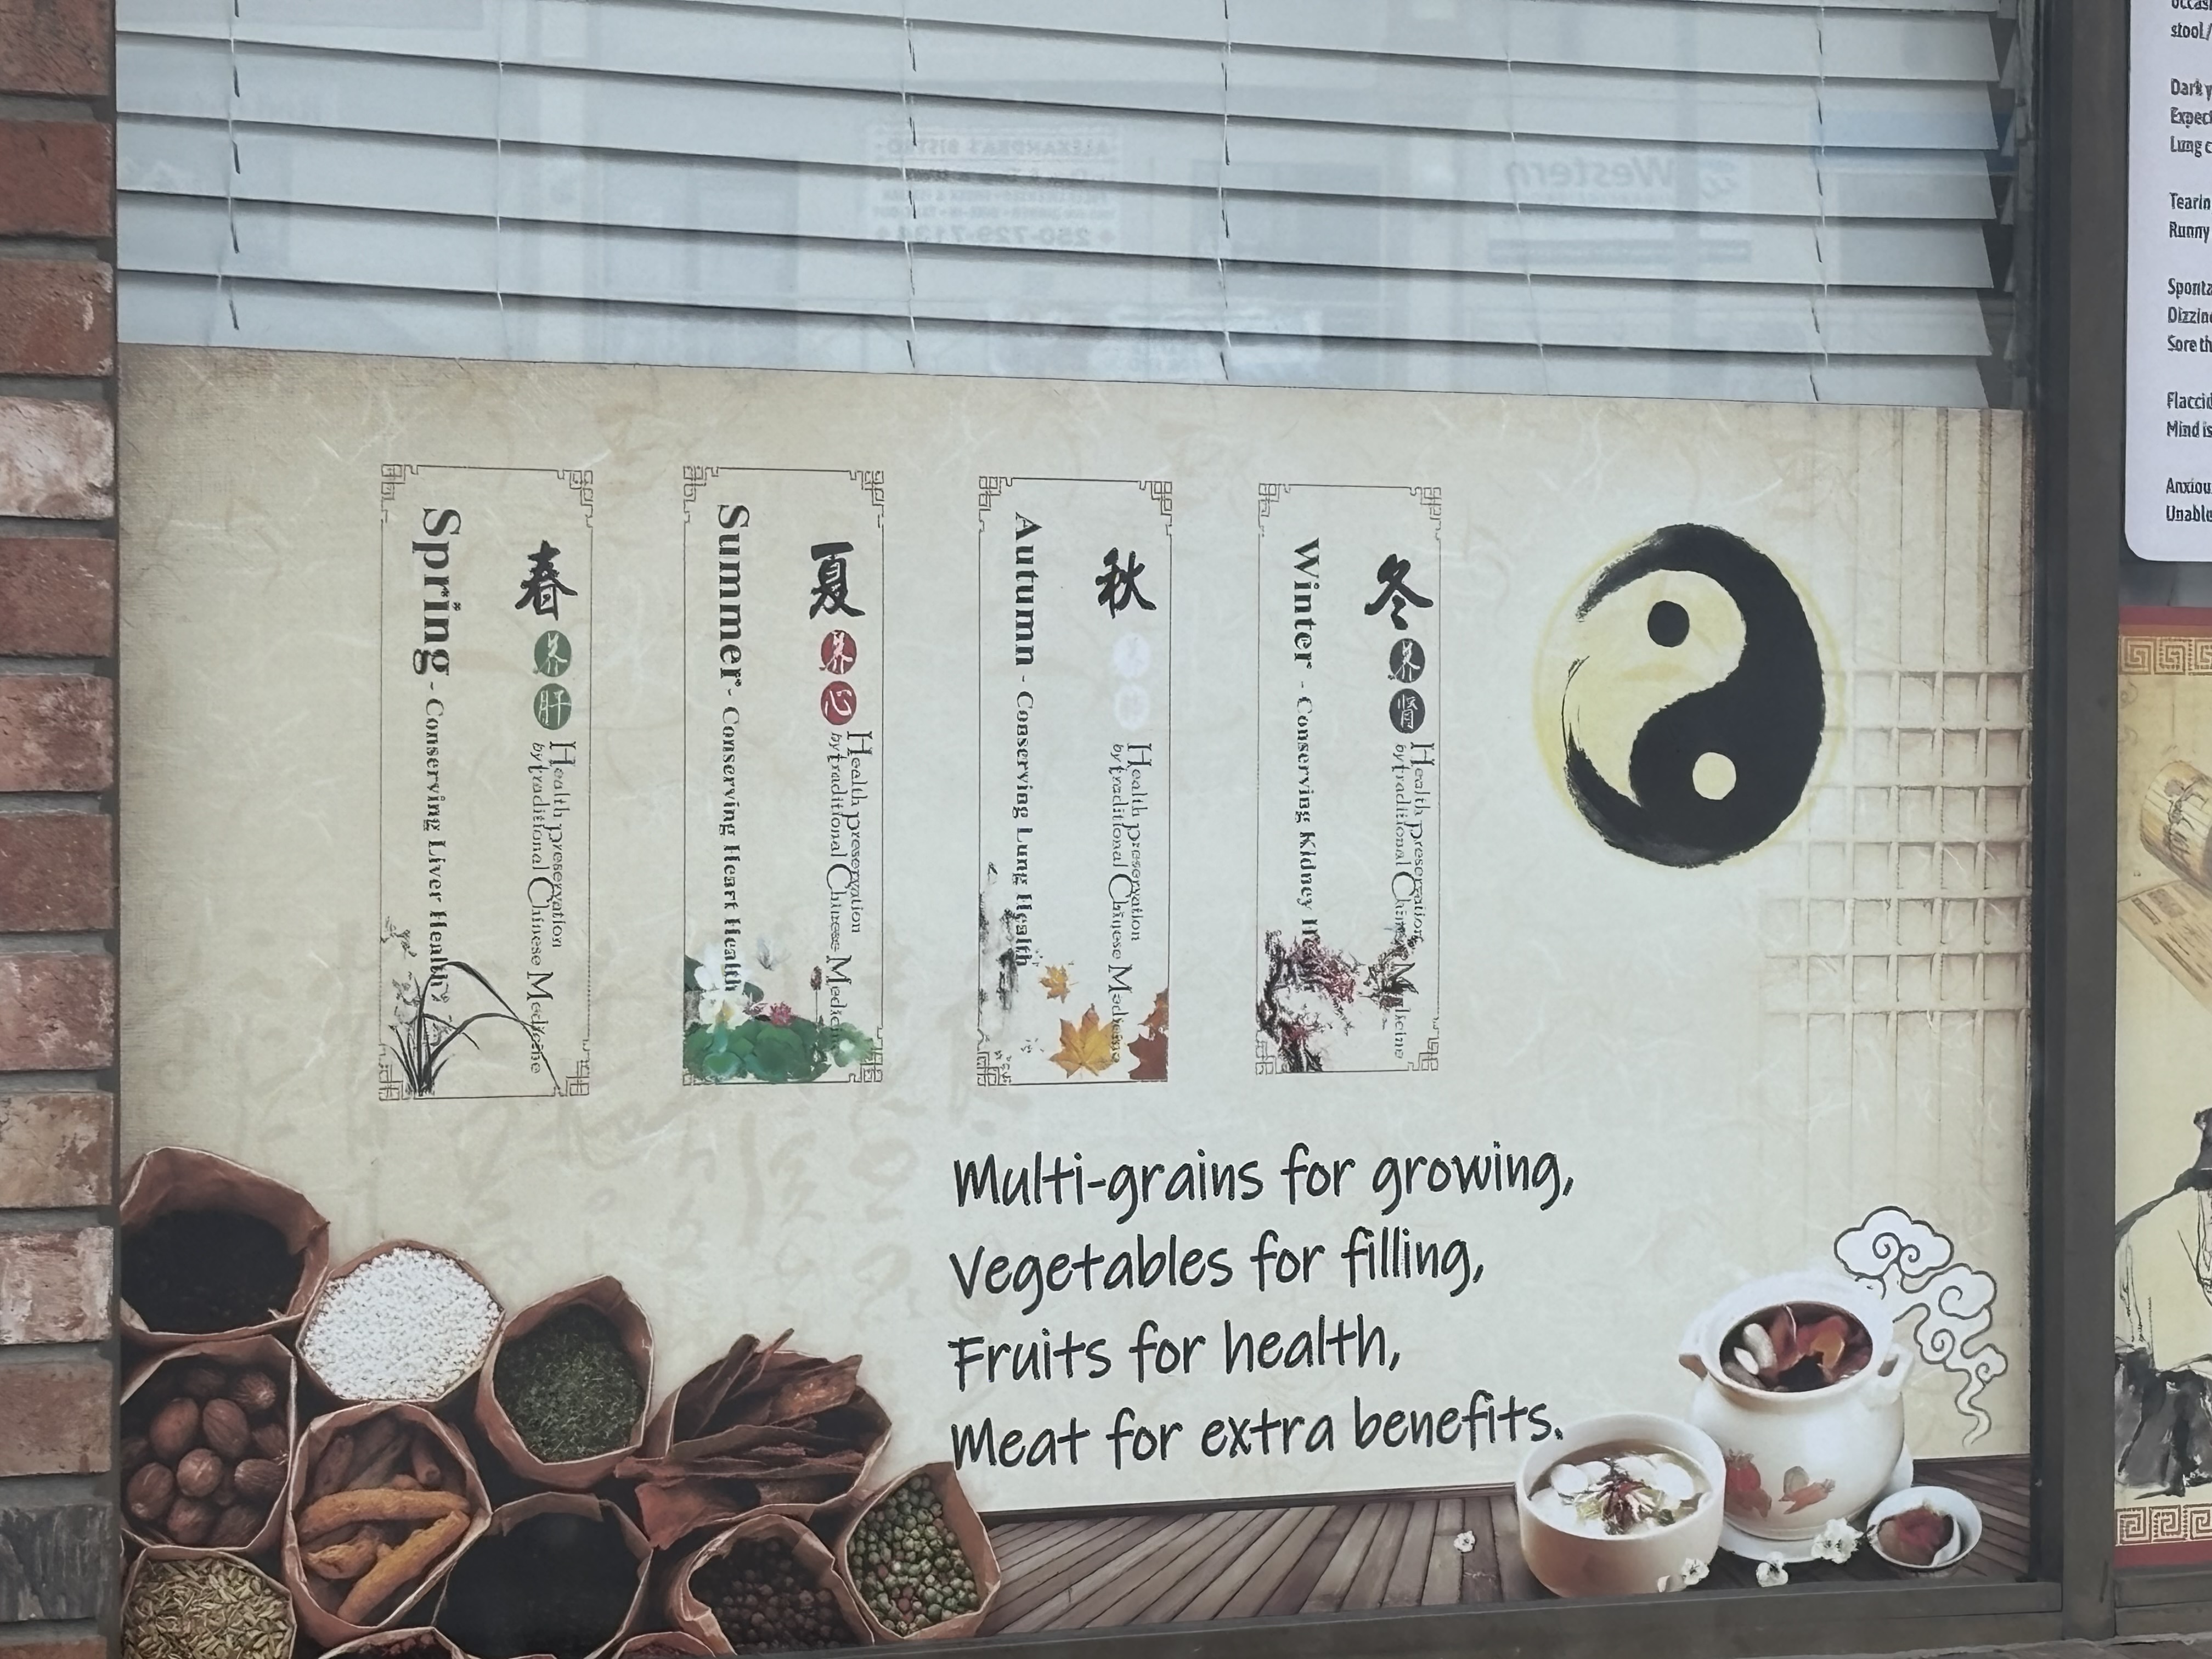 春
养肝
Spring - Conserving Liver Health
Health Preservation
by Traditional Chinese Medicine
夏
养心
Summer - Conserving Heart Health
Health Preservation
by Traditional Chinese Medicine
秋
Autumn - Conserving Lung Health
Health Preservation
by Traditional Chinese Medicine
冬
养肾
Winter - Conserving Kidney
Health Preservation
by Traditional Chinese Medicine
Multi-grains for growing,
Vegetables for filling,
Fruits for health,
Meat for extra benefits.
ALEXANDRA'S BISTRO
250-729-7134
Western
stool/
Dark y
Expect
Lung c
Tearin
Runny
Sponta
Dizzine
Sore th
Flaccid
Mind is
Anxiou
Unable